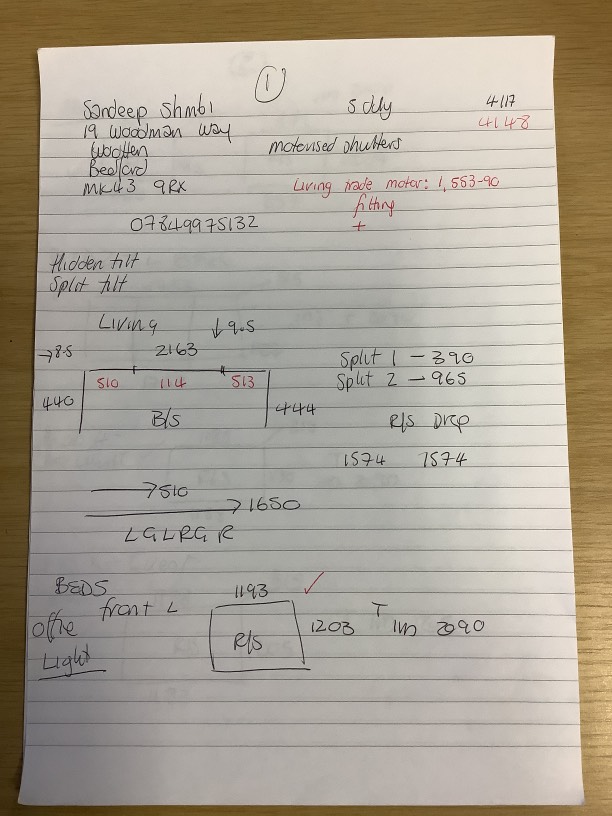 1
Sandeep Shmbi
19 Woodman Way
Wootten
Bedford
MK43 9RX
07849975132
S Dlly
4117
4148
motorised shutters
Living trade motor: 1,553-90
fitting
+
Hidden tilt
Split tilt
Living
↓9.5
→8.5
2163
510 114 513
440
444
B/S
Split 1 — 390
Split 2 → 965
R/S Drop
1574 1574
→510
→1650
LGLRGR
BEDS
front L
Light
1193 ✓
R/S
1203
T
2090